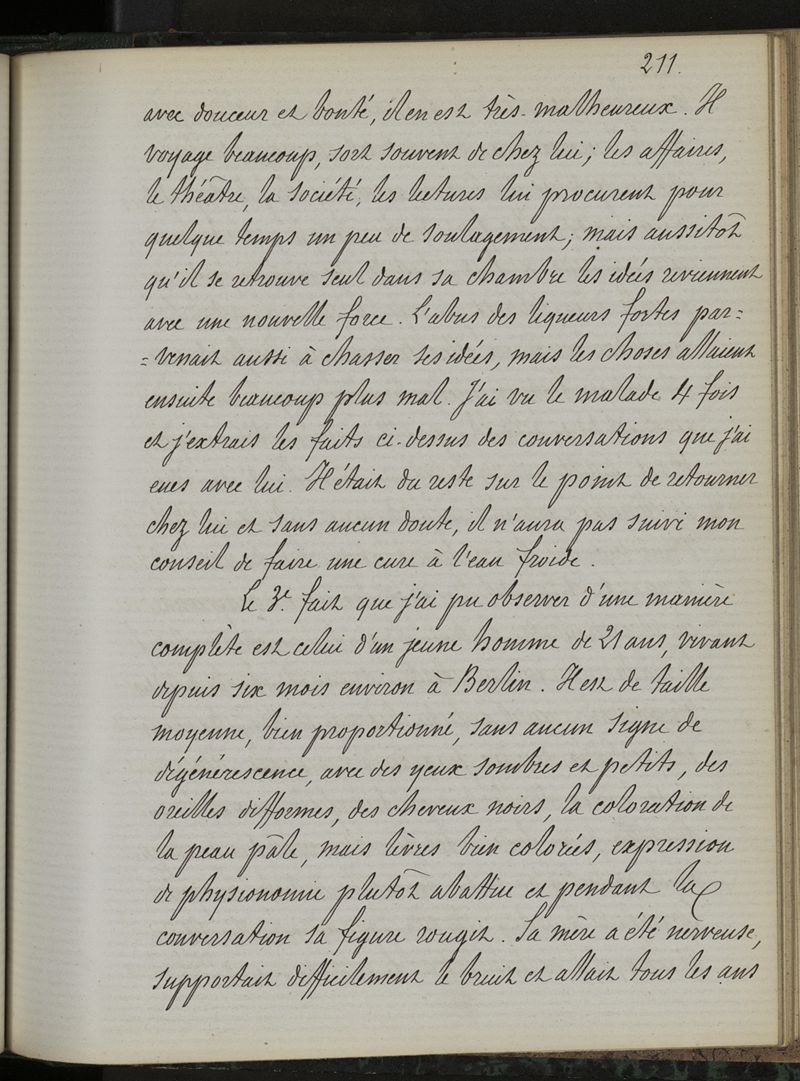 211.
avec douceur et bonté, il en est très-malheureux. Il
voyage beaucoup, sort souvent de chez lui; les affaires,
le théâtre, la société, les lectures lui procurent pour
quelque temps un peu de soulagement; mais aussitôt
qu'il se retrouve seul dans sa chambre les idées reviennent
avec une nouvelle force. L'abus des liqueurs fortes par=
=venait aussi à chasser ses idées, mais les choses allaient
ensuite beaucoup plus mal. J'ai vu le malade 4 fois
et j'extrais les faits ci-dessus des conversations que j'ai
eues avec lui. Il était du reste sur le point de retourner
chez lui et sans aucun doute, il n'aura pas suivi mon
conseil de faire une cure à l'eau froide.
Le 3e. fait que j'ai pu observer d'une manière
complète est celui d'un jeune homme de 21 ans, vivant
depuis six mois environ à Berlin. Il est de taille
moyenne, bien proportionné, sans aucun signe de
dégénérescence, avec des yeux sombres et petits, des
oreilles difformes, des cheveux noirs, la coloration de
la peau pâle, mais lèvres bien coloriés, expression
de physionomie plutôt abattue et pendant la
conversation sa figure rougit. Sa mère a été nerveuse,
supportait difficilement le bruit et allait tous les ans